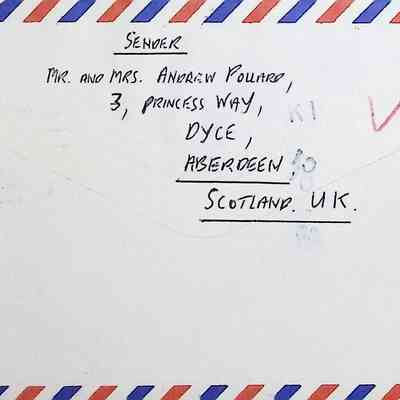 SENDER
MR. AND MRS. ANDREW POLLARD,
3, PRINCESS WAY,
DYCE,
ABERDEEN,
SCOTLAND. UK.
K1